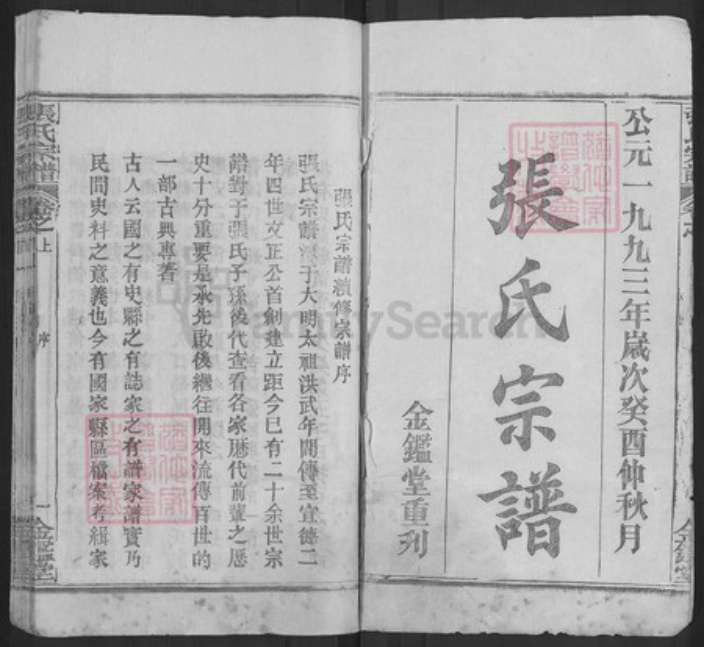 公元一九九三年歲次癸酉仲秋月
張氏宗譜
金鑑堂重刋
張氏宗譜續修宗譜序
張氏宗譜源于大明太祖洪武年間傳至宣德二
年四世文正公首創建立距今已有二十余世宗
譜對于張氏子孫後代查看各家歷代前輩之歷
史十分重要是承先啟後繼往開來流傳百世的
一部古典專著
古人云國之有史縣之有誌家之有譜家譜實乃
民間史料之意義也今有國家縣區檔案考緝家
張氏宗譜
卷之上
序
一
金鑑堂
FamilySearch